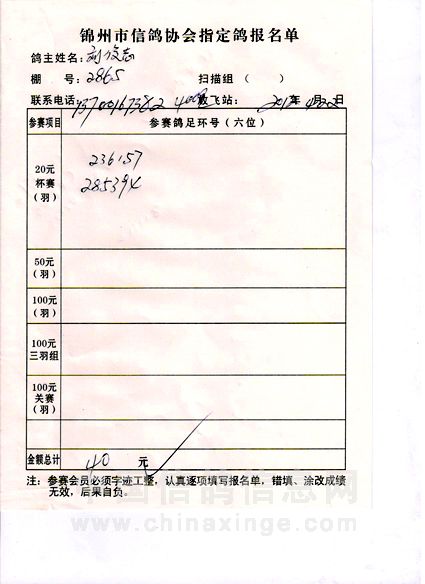 锦州市信鸽协会指定鸽报名单
鸽主姓名:刘俊志
棚 号:2865 扫描组 ( )
联系电话:13700167382 放飞站: 年 月22日
参赛项目 参赛鸽足环号(六位)
20元
杯赛
(羽)
236157
285394
50元
(羽)
100元
(羽)
100元
三羽组
100元
关赛
(羽)
金额总计 40 元
注: 参赛会员必须字迹工整, 认真逐项填写报名单, 错填、涂改成绩
无效, 后果自负。
中国信鸽信息网
www.chinaxinge.com